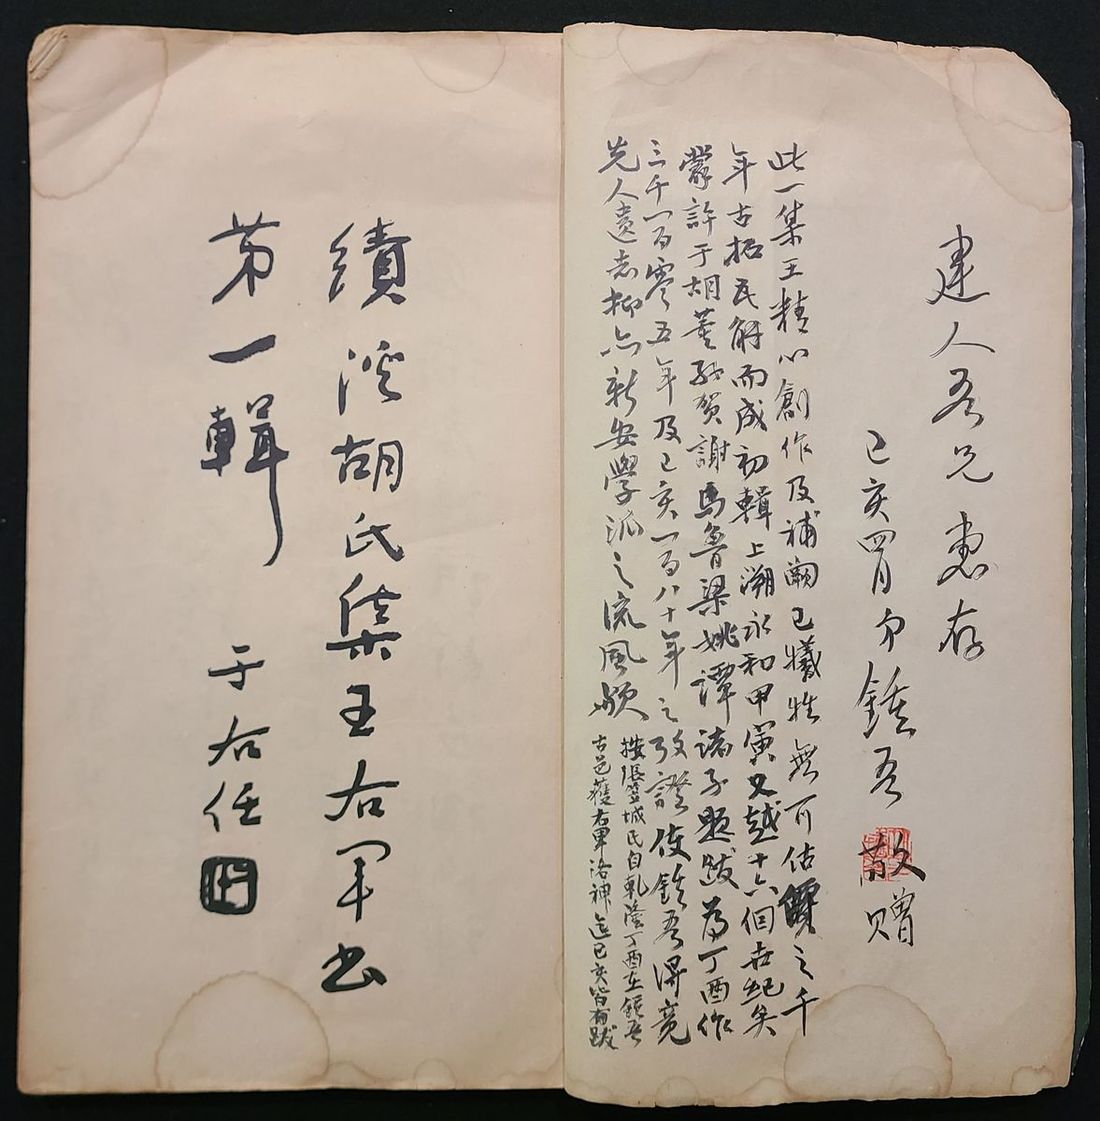 建人吾兄惠存
己亥四月弟鍾吾敬贈
此一集王精心創作及補闕已犧牲無可估價之千
年古拓瓦解而成初輯上溯永和甲寅又越十六個世紀矣
蒙許于胡董張賀謝馬魯梁姚譚諸子題跋為丁酉作
三千一百零五年及己亥一百八十年之攷證使鍾吾得竟
先人遺志抑亦新安學派之流風歟
按張笠城氏自乾隆丁酉在鍾吾
古邑獲右軍洛神迄己亥皆有跋
績溪胡氏集王右軍書
第一輯
于右任